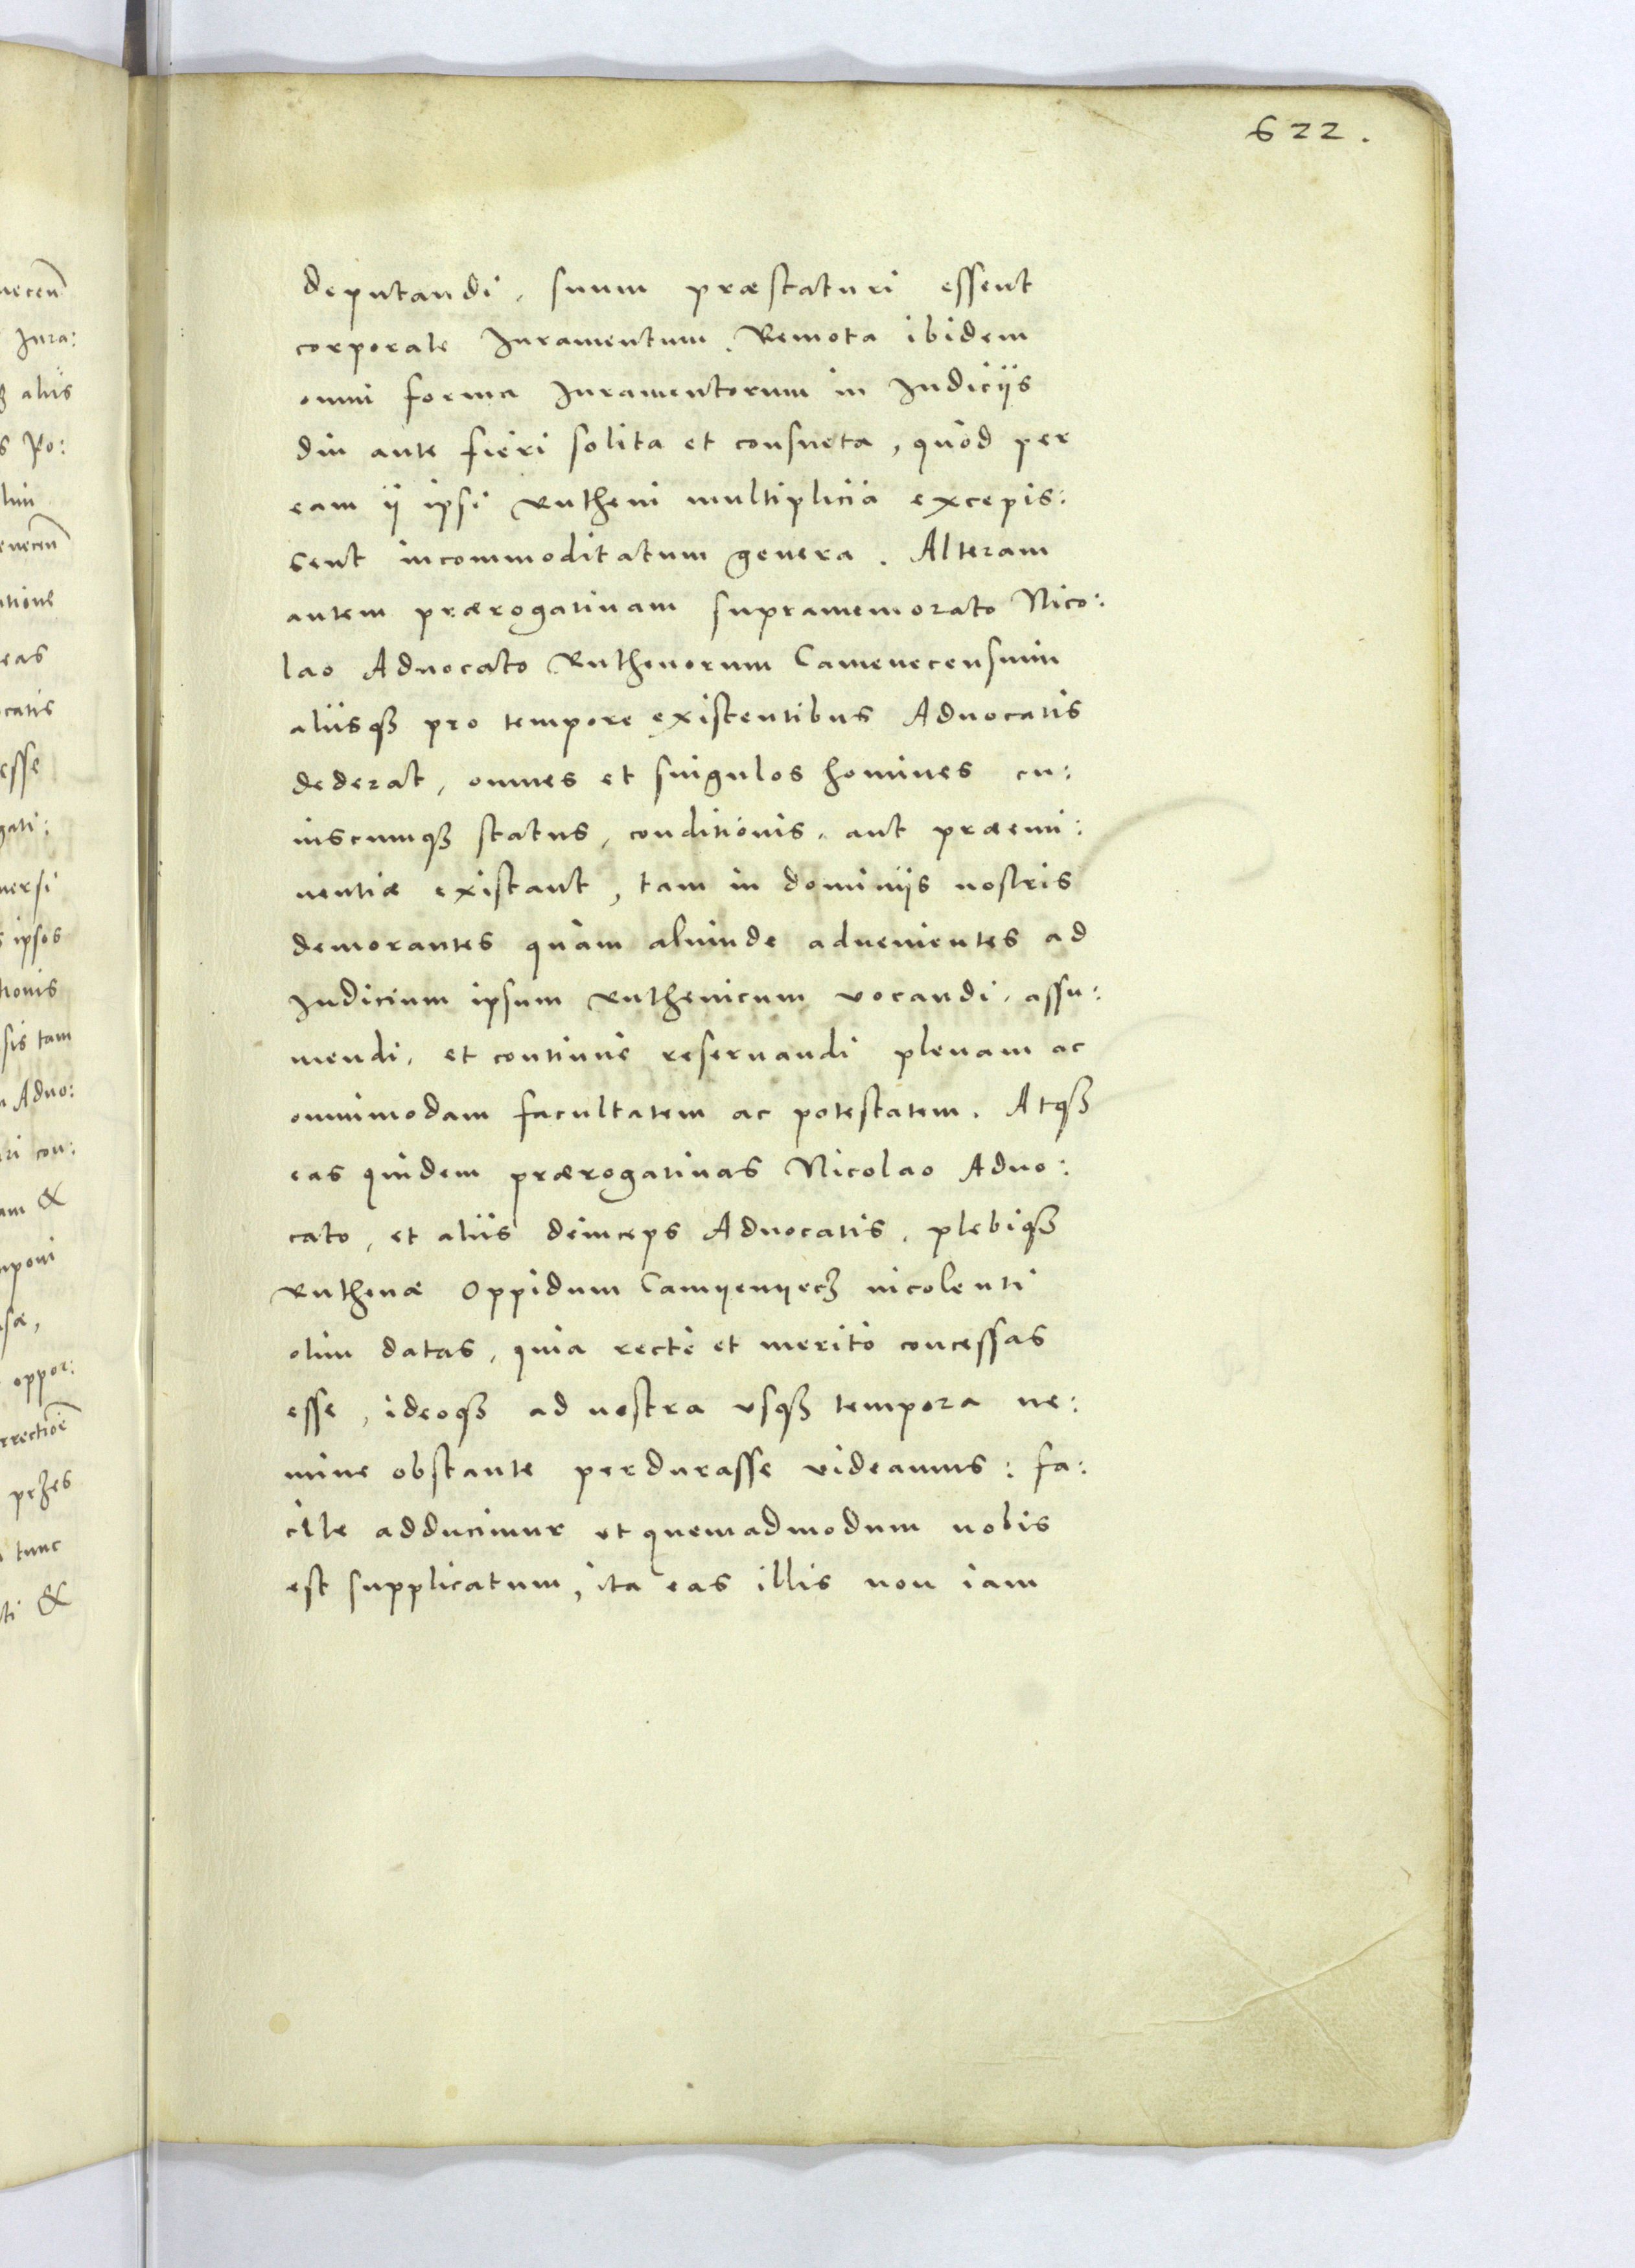 622.
deputandi, suum præstaturi essent
corporale Iuramentum. Remota ibidem
omni forma Iuramentorum in Iudicijs
diu ante fieri solita et consueta, quòd per
eam ij ipsi Rutheni multiplicia excepis:
sent incommoditatum genera. Alteram
autem prærogatiuam supramemorato Nico:
lao Aduocato Ruthenorum Camenecensium
aliisqꝫ pro tempore existentibus Aduocatis
dederat, omnes et singulos homines cu:
iuscumqꝫ status, conditionis, aut præemi:
nentiæ existant, tam in dominijs nostris
demorantes quàm aliunde aduenientes ad
Iudicium ipsum Ruthenicum vocandi, assu:
mendi, et continuè reseruandi plenam ac
omnimodam facultatem ac potestatem. Atqꝫ
eas quidem prærogatiuas Nicolao Aduo:
cato, et aliis deinceps Aduocatis, plebiqꝫ
Ruthenæ Oppidum Camyenyecz incolenti
olim datas, quia rectè et meritò concessas
esse, ideoqꝫ ad nostra vsqꝫ tempora ne:
mine obstante perdurasse videamus: fa:
cile adducimur vt quemadmodum nobis
est supplicatum, ita eas illis non iam